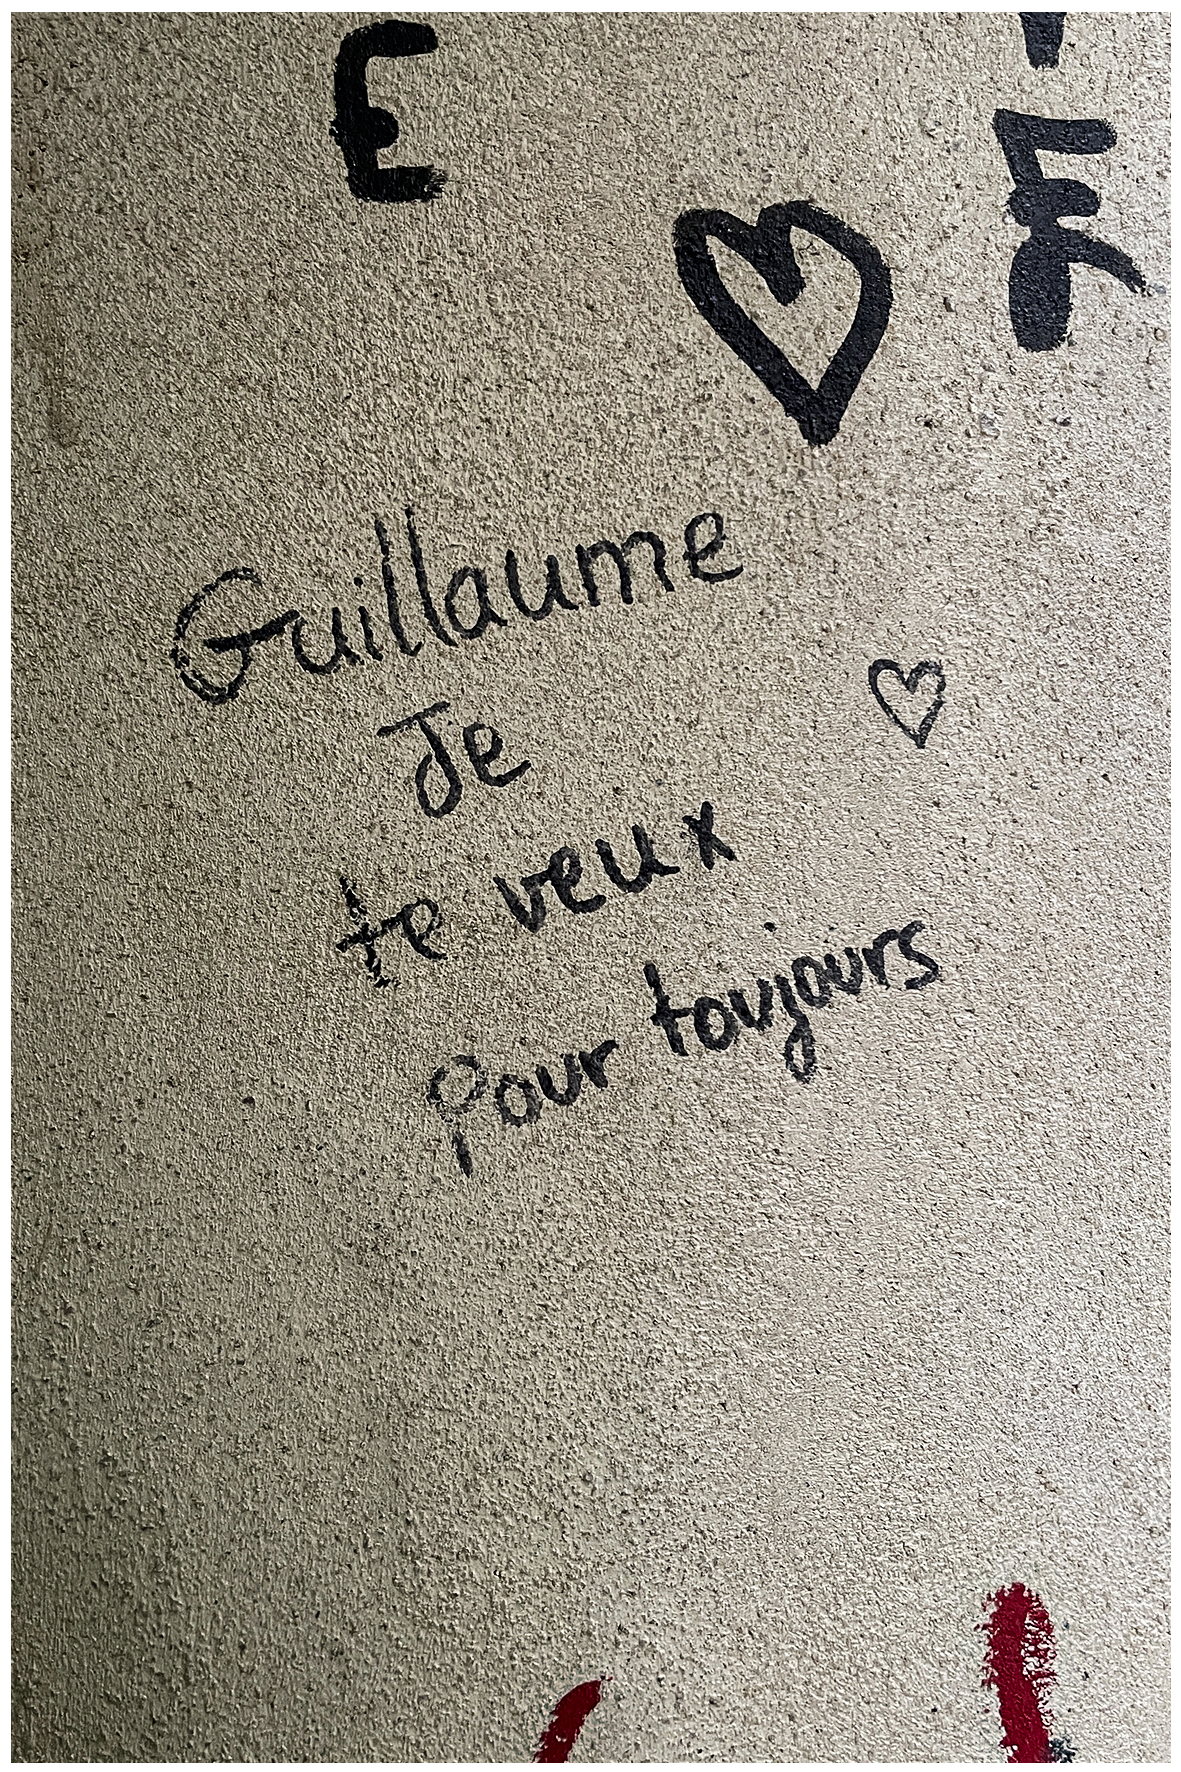 E
Guillaume
Je
te veux
pour toujours